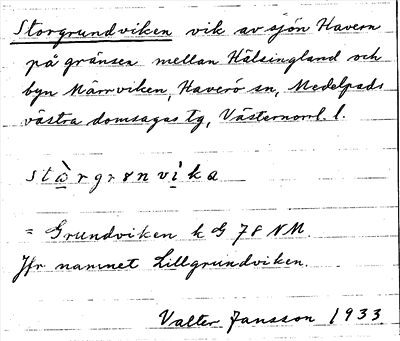 Storgrundviken vik av sjön Havern
på gränsen mellan Hälsingland och
byn Märrviken, Haverö sn, Medelpads
västra domsagas tg, Västernorrl. l.
stò̱rgrønvi̱̇ka
= Grundviken k G 78 NM.
Jfr namnet Lillgrundviken.
Valter Jansson 1933.